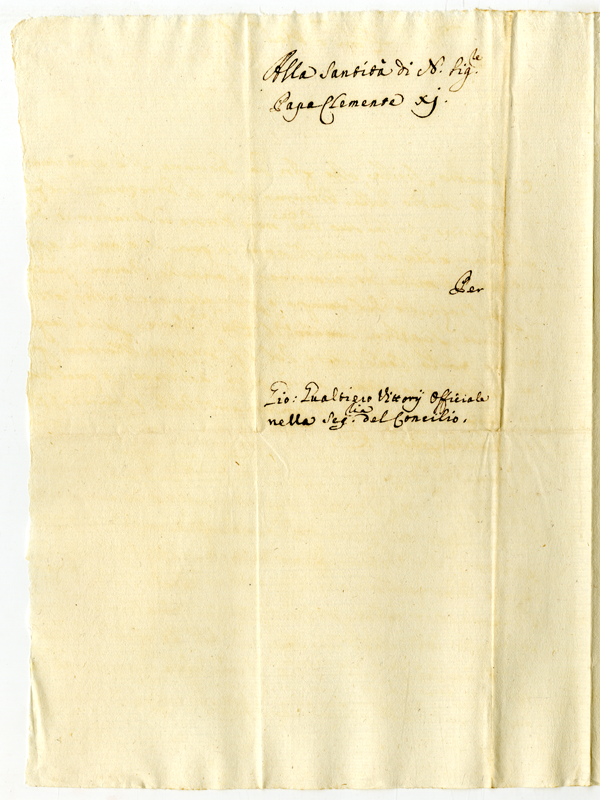 Alla Santità di N. Sig.re
Papa Clemente xj.
Per
Gio: Gualtiero Vittorij Officiale
nella Seg.ria del Concilio.